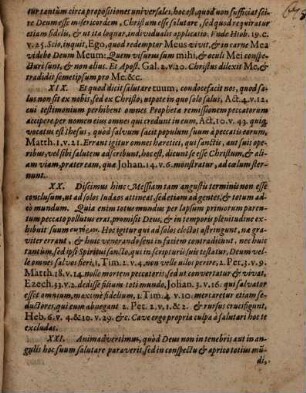 tur tantùm circa propositiones universales, hoc est, quod non sufficiat scire
Deum esse misericordem, Christum esse salutare, sed quod requiratur
etiam fidelis, & ut ita loquar, individualis applicatio. Vnde Hiob. 19. c.
v. 25. Scio, inquit, Ego, quod redemptor Meus vivit, & in carne Mea
videbo Deum Meum: Quem visurus sum mihi, & oculi Mei conspe-
cturi sunt, & non alius. Et Apost. Gal. 2. v. 20. Christus dilexit Me, &
tradidit semetipsum pro Me. &c.
XIX. Et quod dicit salutare tuum, condocefacit nos, quod sa-
lus non sit ex nobis, sed ex Christo, utpote in quo solo salus, Act. 4. v. 12.
cui testimonium perhibent omnes Prophetæ remissionem peccatorum
accipere per nomen ejus omnes qui credunt in eum, Act. 10. v. 43. quiq;
vocatus est Jhesus, quòd salvum facit populum suum à peccatis eorum,
Matth. 1. v. 21. Errant igitur omnes hæretici, qui sanctis, aut suis operi-
bus, vel sibi salutem adscribunt, hoc est, dicunt se esse Christum, & a-
aliam viam præter eam, quæ Johan. 14. v. 6. monstratur, ad cœlum ster-
nunt.
XX. Discimus hinc Messiam tam angustis terminis non esse
conclusum, ut ad solos Judæos attineat, sed etiam ad gentes, & totum ad-
eò mundum. Quia enim totus mundus per lapsum primorum paren-
tum peccato pollutus erat, promisit Deus, & in temporis plenitudine ex-
hibuit suum Hoc igitur qui ad solos electos astringunt, næ gra-
viter errant, & huic venerando seni in faciem contradicunt. nec huic
tantùm, sed ipsi Spiritui sancto, qui in scripturis suis testatur, Deum vel-
le omnes salvos fieri, 1. Tim. 2. v. 4. non velle aliquos perire, 2. Pet. 3. v. 9.
Matth. 18. v. 14. nolle mortem peccatoris sed ut convertatur & vivat,
Ezech. 33. v. 2. dedisse filium toti mundo, Johan. 3. v. 16. qui salvator
esset omnium, maximè fidelium, 1. Tim. 4. v. 10. mercaretur etiam se-
ductores, qui eum abnegant 2. Pet. 2. v. 1. & 2. & rursus crucifigunt,
Heb. 6. v. 4. & 10. v. 29. &c. Cave ergo propria culpa à salutari hoc te
excludas.
XXI. Animadvertimus, quòd Deus non in tenebris aut in an-
gulis hoc suum salutare paraverit, sed in conspectu & aprico totius mũ-
di,